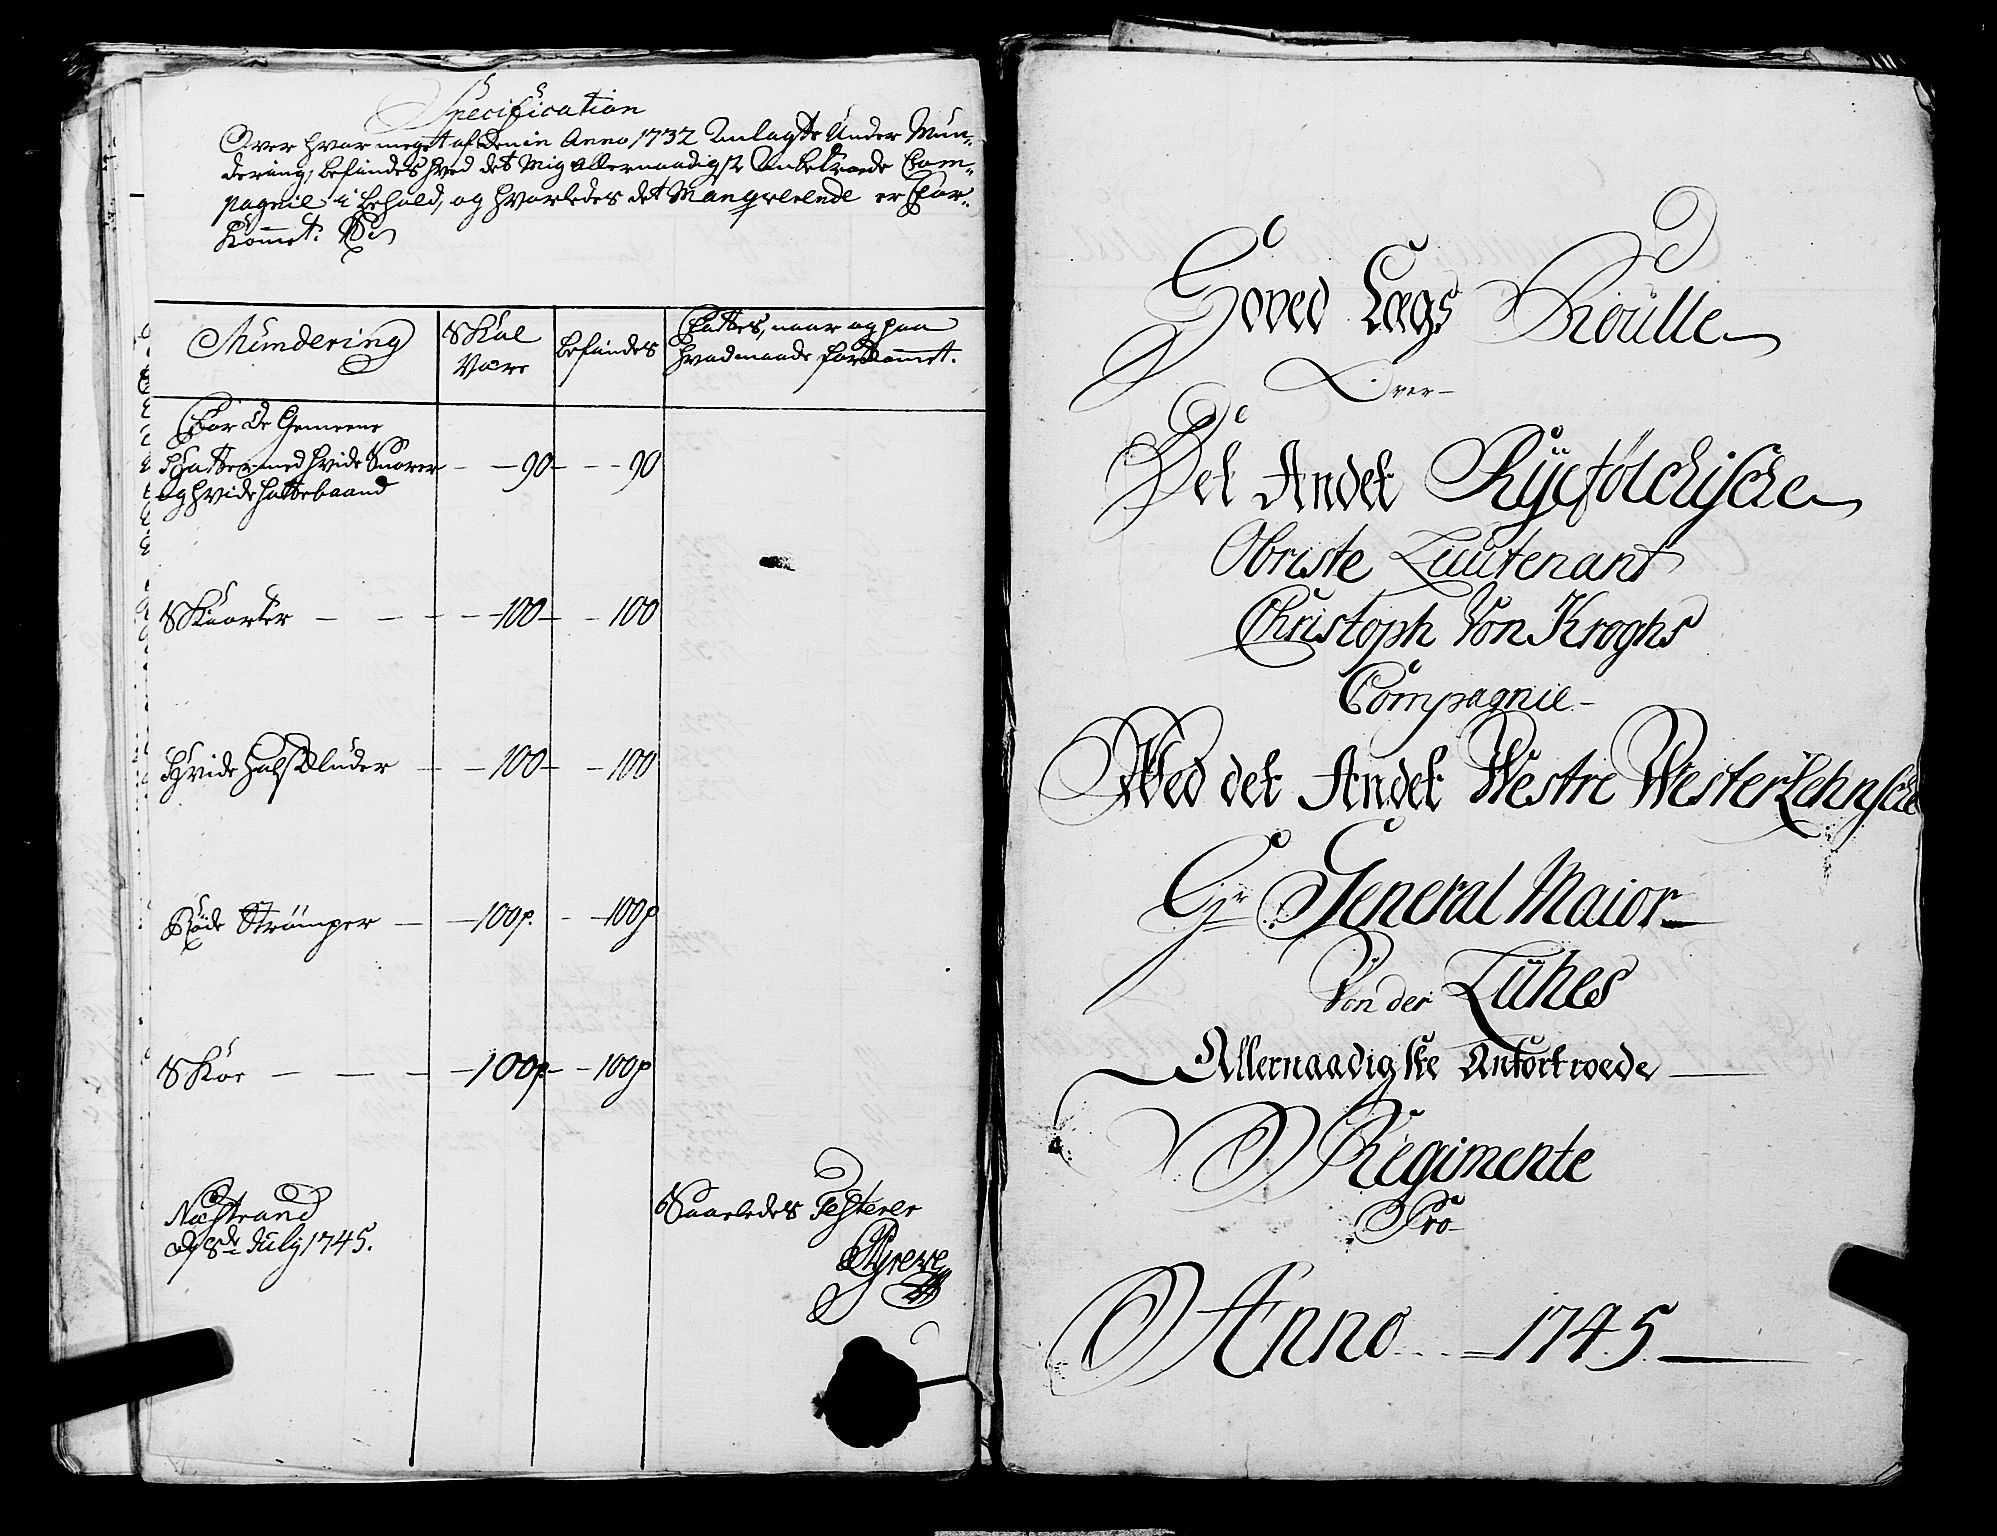 Specification
Over hvor meget af den in Anno 1732 Anlagte Under Mun-
dering, befindes hved det Mig Allernaadigst Anbetroede Com-
pagnie i behold, og hvorledes det Manqverende er For-
kommet.
Mundering
Skal
Være
befindes
Fattes, naar og paa
hvad maade forkommet.
For de Gemeene
Hatter med hvide Snorer — — 90 — — 90
og hvide hattebaand
Skiorter — — — 100 — — 100
Hvide Halskluder — — 100 — — 100
Røde Strømper — — 100p. — — 100p
Skoe — — — 100p — — 100p
Næstrand
d 8de July 1745.
Saaledes Testerer
Hoved Lægs Roulle
Over
Det Andet Ryefölckische
Obriste Lieutenant
Christoph Von Kroghs
Compagnie
Wed det Andet Westre Westerlehnsche
Hr General Maior
Von der Lühes
Allernaadigste Anfortroede
Regimente
Pro
Anno 1745